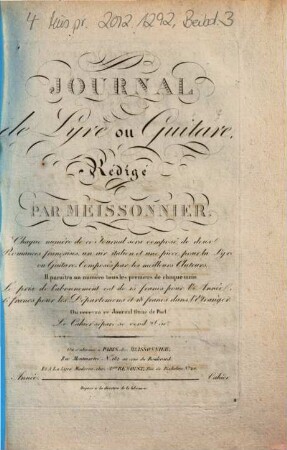 4 Mus.pr. 2012.1292, Beibd.3
JOURNAL
de Lyre ou Guitare,
Rédigé
PAR MEISSONNIER.
Chaque numéro de ce Journal sera composé de deux
Romances françaises, un air italien et une pièce pour la Lyre
ou Guitare, Composés par les meilleurs Auteurs.
Il paraitra un numéro tous les premiers de chaque mois.
Le prix de l'abonnement est de 15 francs pour l'Année
francs pour les Départemens et francs dans l'Etranger
On recevra ce Journal franc de Port.
Le Cahier séparé se vend
à PARIS, chez MEISSONNIER,
Rue Montmartre, N.° 182, au coin du Boulevard.
Et A la Lyre Moderne, chez M.me BENOIST, Rue
Année Cahier
Déposé à la direction de la librairie